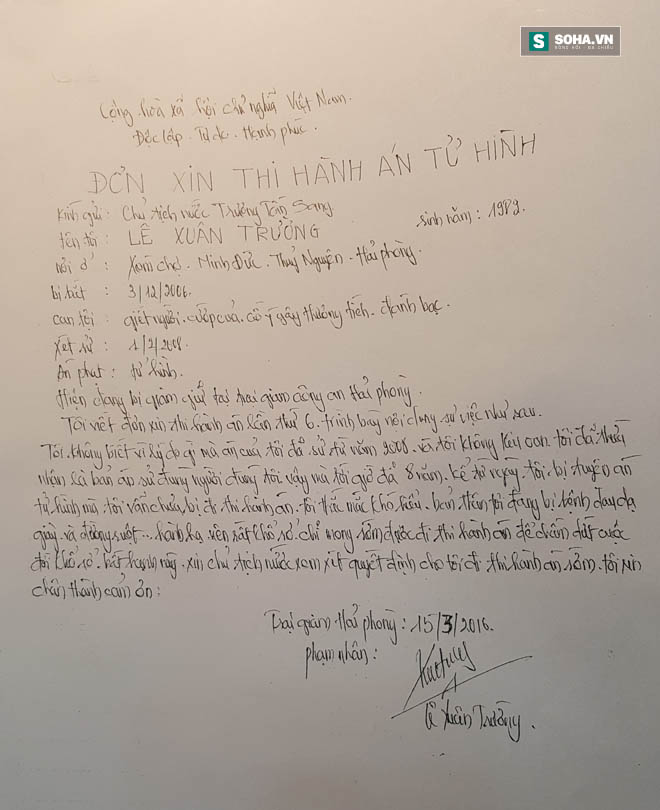 SOHA.VN
SỐNG HỎI - ĐA CHIỀU
Cộng hoà xã hội chủ nghĩa Việt Nam.
Độc lập. Tự do. Hạnh phúc.
ĐƠN XIN THI HÀNH ÁN TỬ HÌNH
Kính gửi: Chủ tịch nước Trương Tấn Sang
tên tôi : LÊ XUÂN TRƯỜNG sinh năm: 1982.
nơi ở : Xóm chợ. Minh Đức. Thuỷ Nguyên. Hải phòng.
bị bắt : 3/12/2006.
can tội : giết người. cướp của. cố ý gây thương tích. đánh bạc.
xét sử : 1/2/2008.
Án phạt : tử hình.
Hiện đang bị giam giữ tại trại giam công an Hải phòng.
Tôi viết đơn xin thi hành án lần thứ 6. trình bày nội dung sự việc như sau.
Tôi. không biết vì lý do gì mà án của tôi đã sử từ năm 2008. và tôi không kêu oan. tôi đã thừa
nhận là bản án sử đúng người đúng tội vậy mà tới giờ đã 8 năm. kể từ ngày. tôi. bị tuyên án
tử hình mà tôi vẫn chưa bị đi thi hành án. tôi thắc mắc khó hiểu. bản thân tôi đang bị bệnh đau dạ
giầy và đường ruột... hành hạ nên rất khổ sở. chỉ mong sớm được đi thi hành án để chấm dứt cuộc
đời khổ sở. bất hạnh này. xin chủ tịch nước xem xét quyết định cho tôi đi thi hành án sớm. tôi xin
chân thành cảm ơn:
Trại giam Hải phòng: 15/3/2016.
phạm nhân:
Lê Xuân Trường.